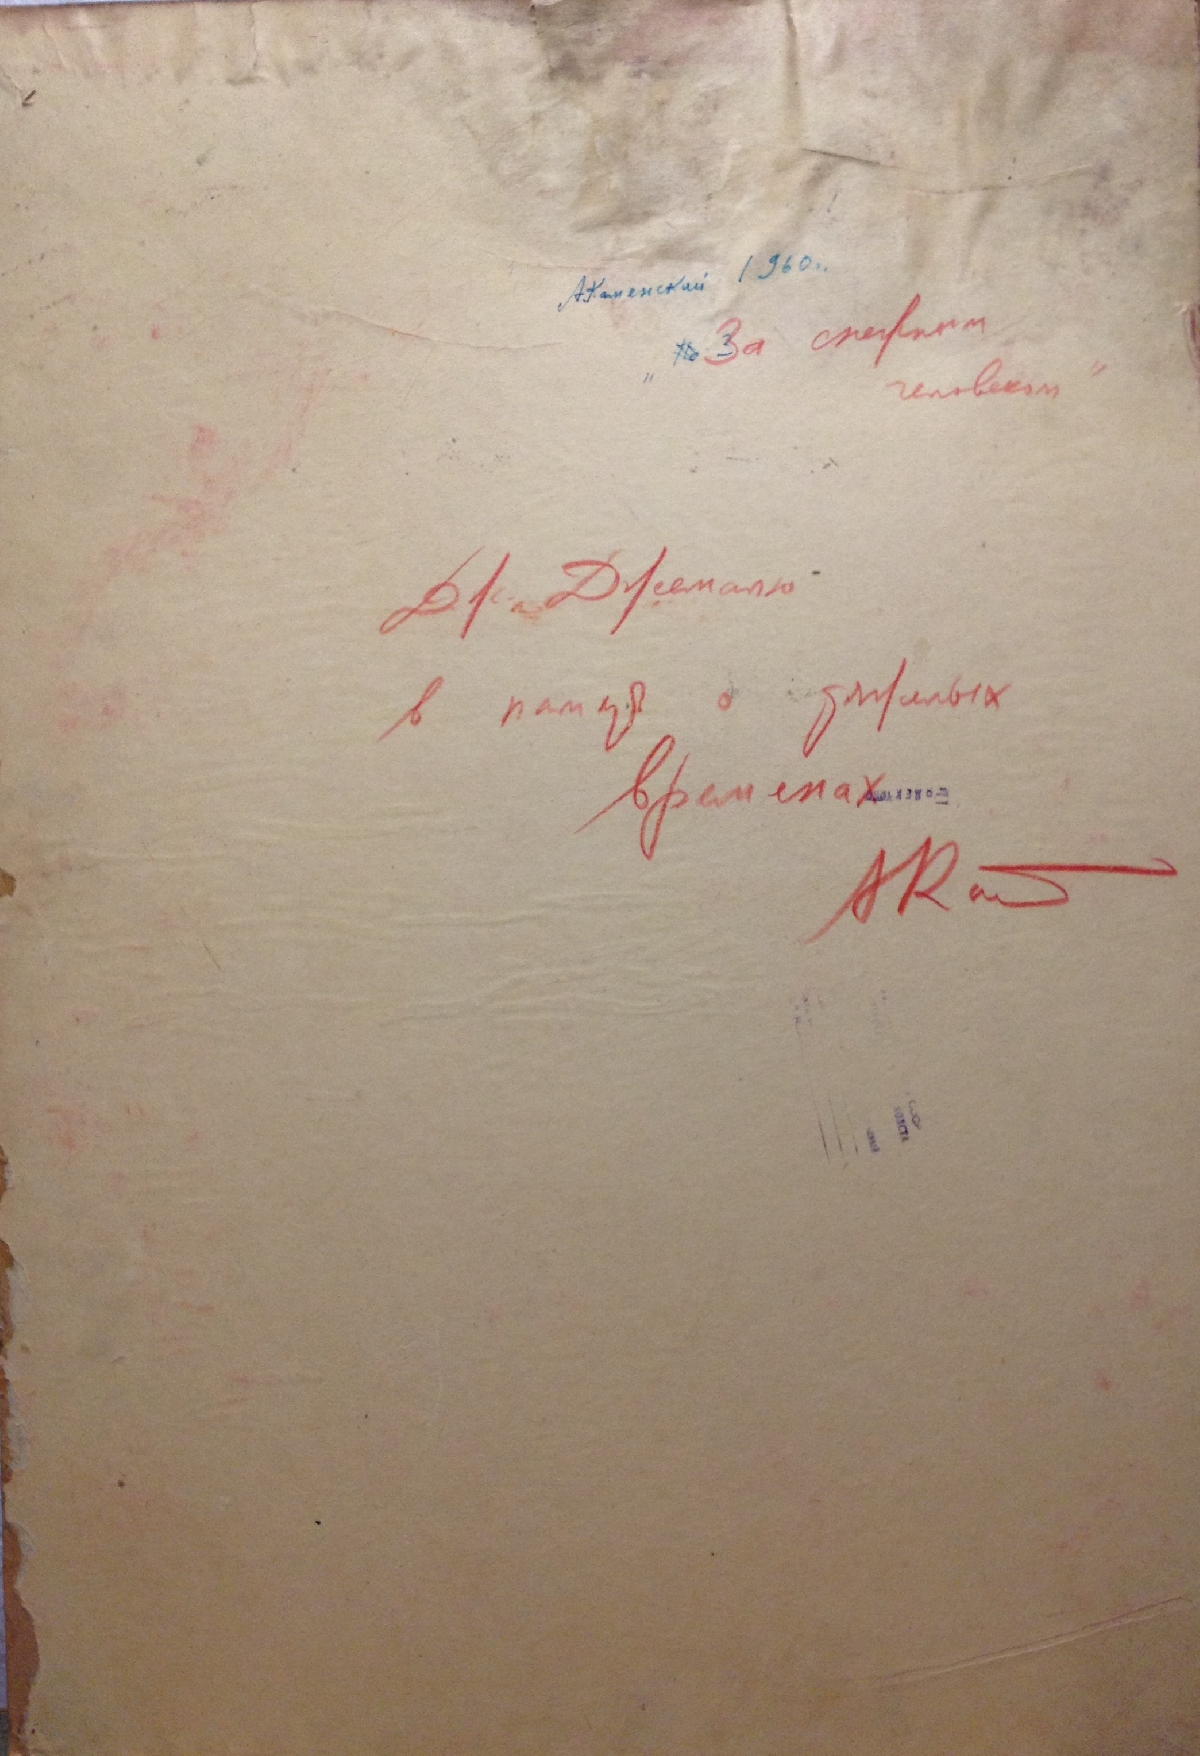 АКаменский 1960г.
„За снежным
человеком"
Дж. Джемалю
в память о тяжелых
временах
АКа